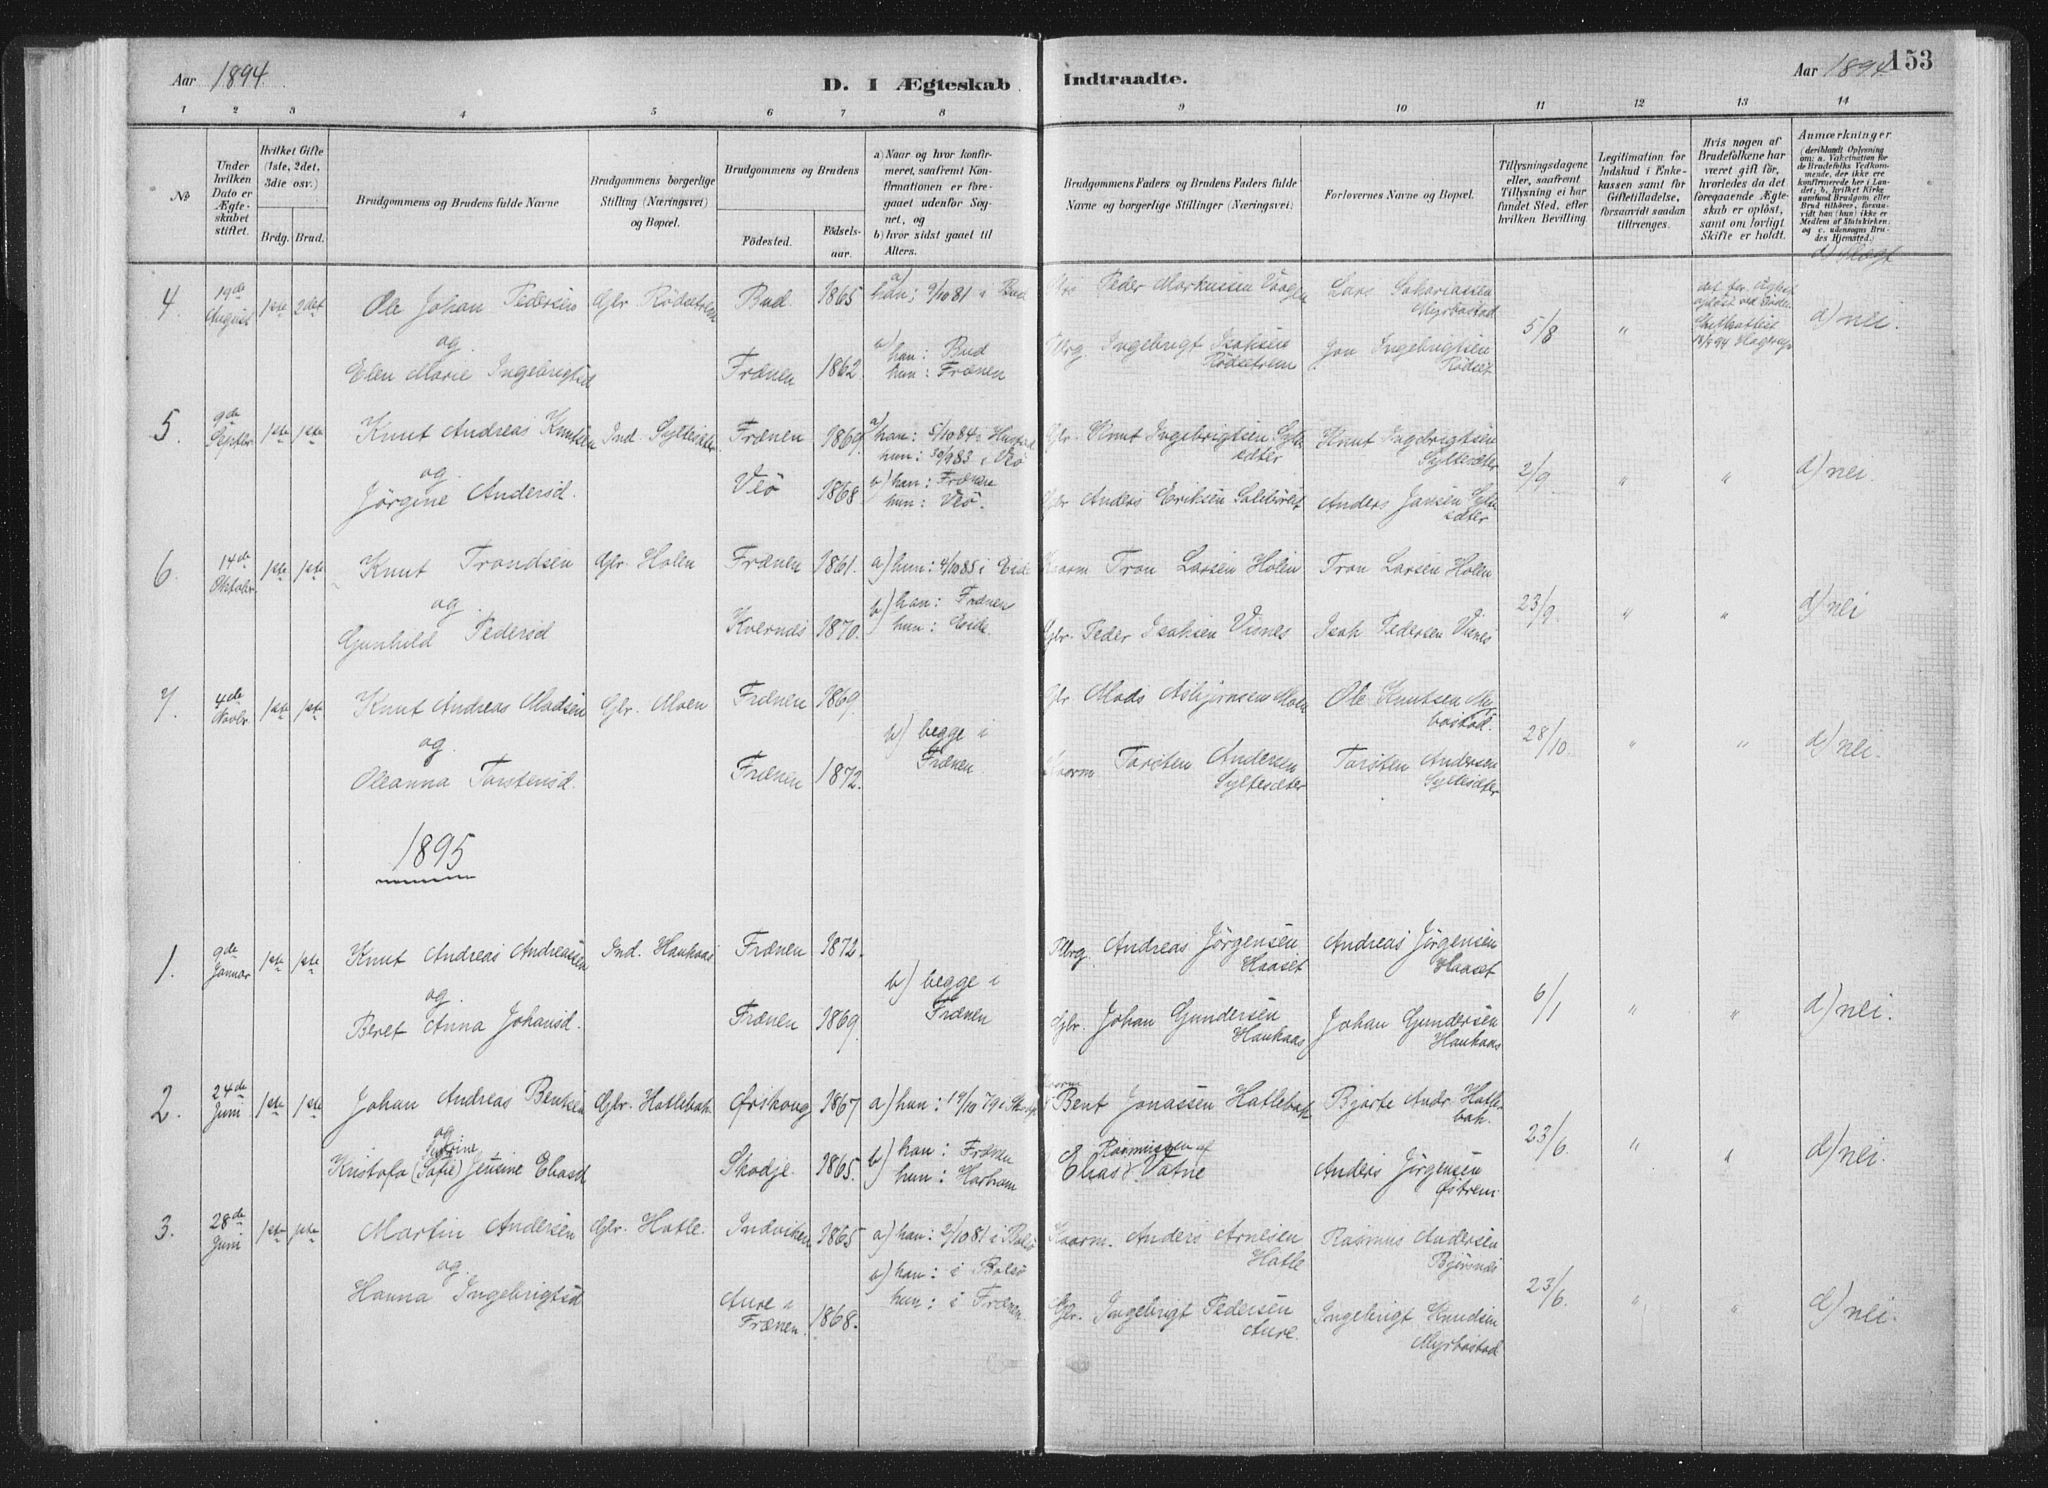 Aar 1894.
D. I Ægteskab Indtraadte.
Aar 1894
153
1 2 3 4 5 6 7 8 9 10 11 12 13 14
No
Under hvilken Dato er Ægteskabet stiftet.
Hvilket Gifte (1ste, 2det, 3die osv.)
Brdg. Brud.
Brudgommens og Brudens fulde Navne
Brudgommens borgerlige Stilling (Næringsvei) og Bopæl.
Brudgommens og Brudens
Fødested.
Fødselsaar.
a) Naar og hvor konfirmeret, saafremt Konfirmationen er foregaaet udenfor Sognet, og
b) hvor sidst gaaet til Alters.
Brudgommens Faders og Brudens Faders fulde Navne og borgerlige Stillinger (Næringsvei)
Forlovernes Navne og Bopæl.
Tillysningsdagene eller, saafremt Tillysning ei har fundet Sted, efter hvilken Bevilling
Legitimation for Indskud i Enkekassen samt for Giftetilladelse, forsaavidt saadan tiltrænges.
Hvis nogen af Brudefolkene har været gift før, hvorledes da det foregaaende Ægteskab er opløst, samt om lovligt Skifte er holdt.
Anmærkninger
(deriblandt Oplysning om: a. Vakcination for de Brudefolks Vedkommende, der ikke ere konfirmerede her i Landet; b. hvilken Kirkesamfund Brudgom eller Brud tilhører, forsaavidt han (hun) ikke er Medlem af Statskirken; og c. udensogns Brudes Hjemsted.)
d) Slægt
4 19de August 1ste 2det Ole Johan Pedersen Gbr Rødsetrem Bud. 1865 a) han: 9/10 81 i Bud Peder Markussen Vaagen Lars Sakariassen Myrbostad 5/8 " d) nei.
og
Elen Marie Ingebrigtsd Frænen 1862. b) han: Bud hun: Frænen Ingebrigt Isaksen Rødsetrem Jon Ingebrigtsen Rødset
5. 9de Septbr 1ste 1ste Knut Andreas Knutsen Ind. Syltesæter Frænen 1869. a) han: 5/10 84 i Hustad hun: 30/9 83 i Veö Gbr. Knut Ingebrigtsen Syltesæter Knut Ingebrigtsen Syltesæter 2/9. " " d) nei.
og
Jørgine Andersd. Veö 1868 b) han: Frænen hun: Veö. Gbr Anders Eriksen Anders Jansen Syltesæter
6. 14de Oktober 1ste 1ste Knut Trondsen Gbr Holen Frænen 1861. a) hun: 4/10 85 i Eide Tron Larsen Holen Tron Larsen Holen 23/9. " " d) nei
og
Gunhild Pedersd Kvernæs 1870. b) han: Frænen hun: Eide. Gbr. Peder Isaksen Visnes Isak Pedersen Visnes
7. 4de Novbr. 1ste 1ste Knut Andreas Madsen Gbr. Moen Frænen 1869. b) begge i Frænen Gbr Mads Asbjørnsen Moen Ole Knutsen Myrbostad. 28/10. " " d) nei.
og
Oleanna Torstensd. Frænen 1872. Torsten Andersen Syltesæter Torsten Andersen Syltesæter
1895
1. 9de Januar 1ste 1ste Knut Andreas Andreassen Ind. Haukaas Frænen 1872. b) begge i Frænen Andreas Jørgensen Haaset Andreas Jørgensen Haaset 6/1 " " d) nei.
og
Beret Anna Johansd. Frænen 1869. Gbr. Johan Gundersen Haukaas Johan Gundersen Haukaas
2. 24de Juni 1ste 1ste Johan Andreas Bentsen Gbr. Hatlebak Ørskoug 1867 a) hun: 19/10 79 i Bent Jonassen Hatlebak Bjarte Andr. Hatlebak. 23/6. " " d) nei.
og
Kristofa (Safie) Jensine Eliasd Skodje 1865. b) han: Frænen hun: Harham Elias Rasmussen af Vatne Anders Jørgensen Østrem
3. 28de Juni 1ste 1ste Martin Andersen Gbr. Hatle. Indviken 1865 a) han: 2/10 81 i Bolsø Anders Arnesen Hatle Rasmus Andersen Bjørsnæs 23/6. " " d) nei.
og
Hanna Ingebrigtsd Aure i Frænen. 1868. b) han: i Bolsø hun: i Frænen. Gbr. Ingebrigt Pedersen Aure. Ingebrigt Knudsen Myrbostad